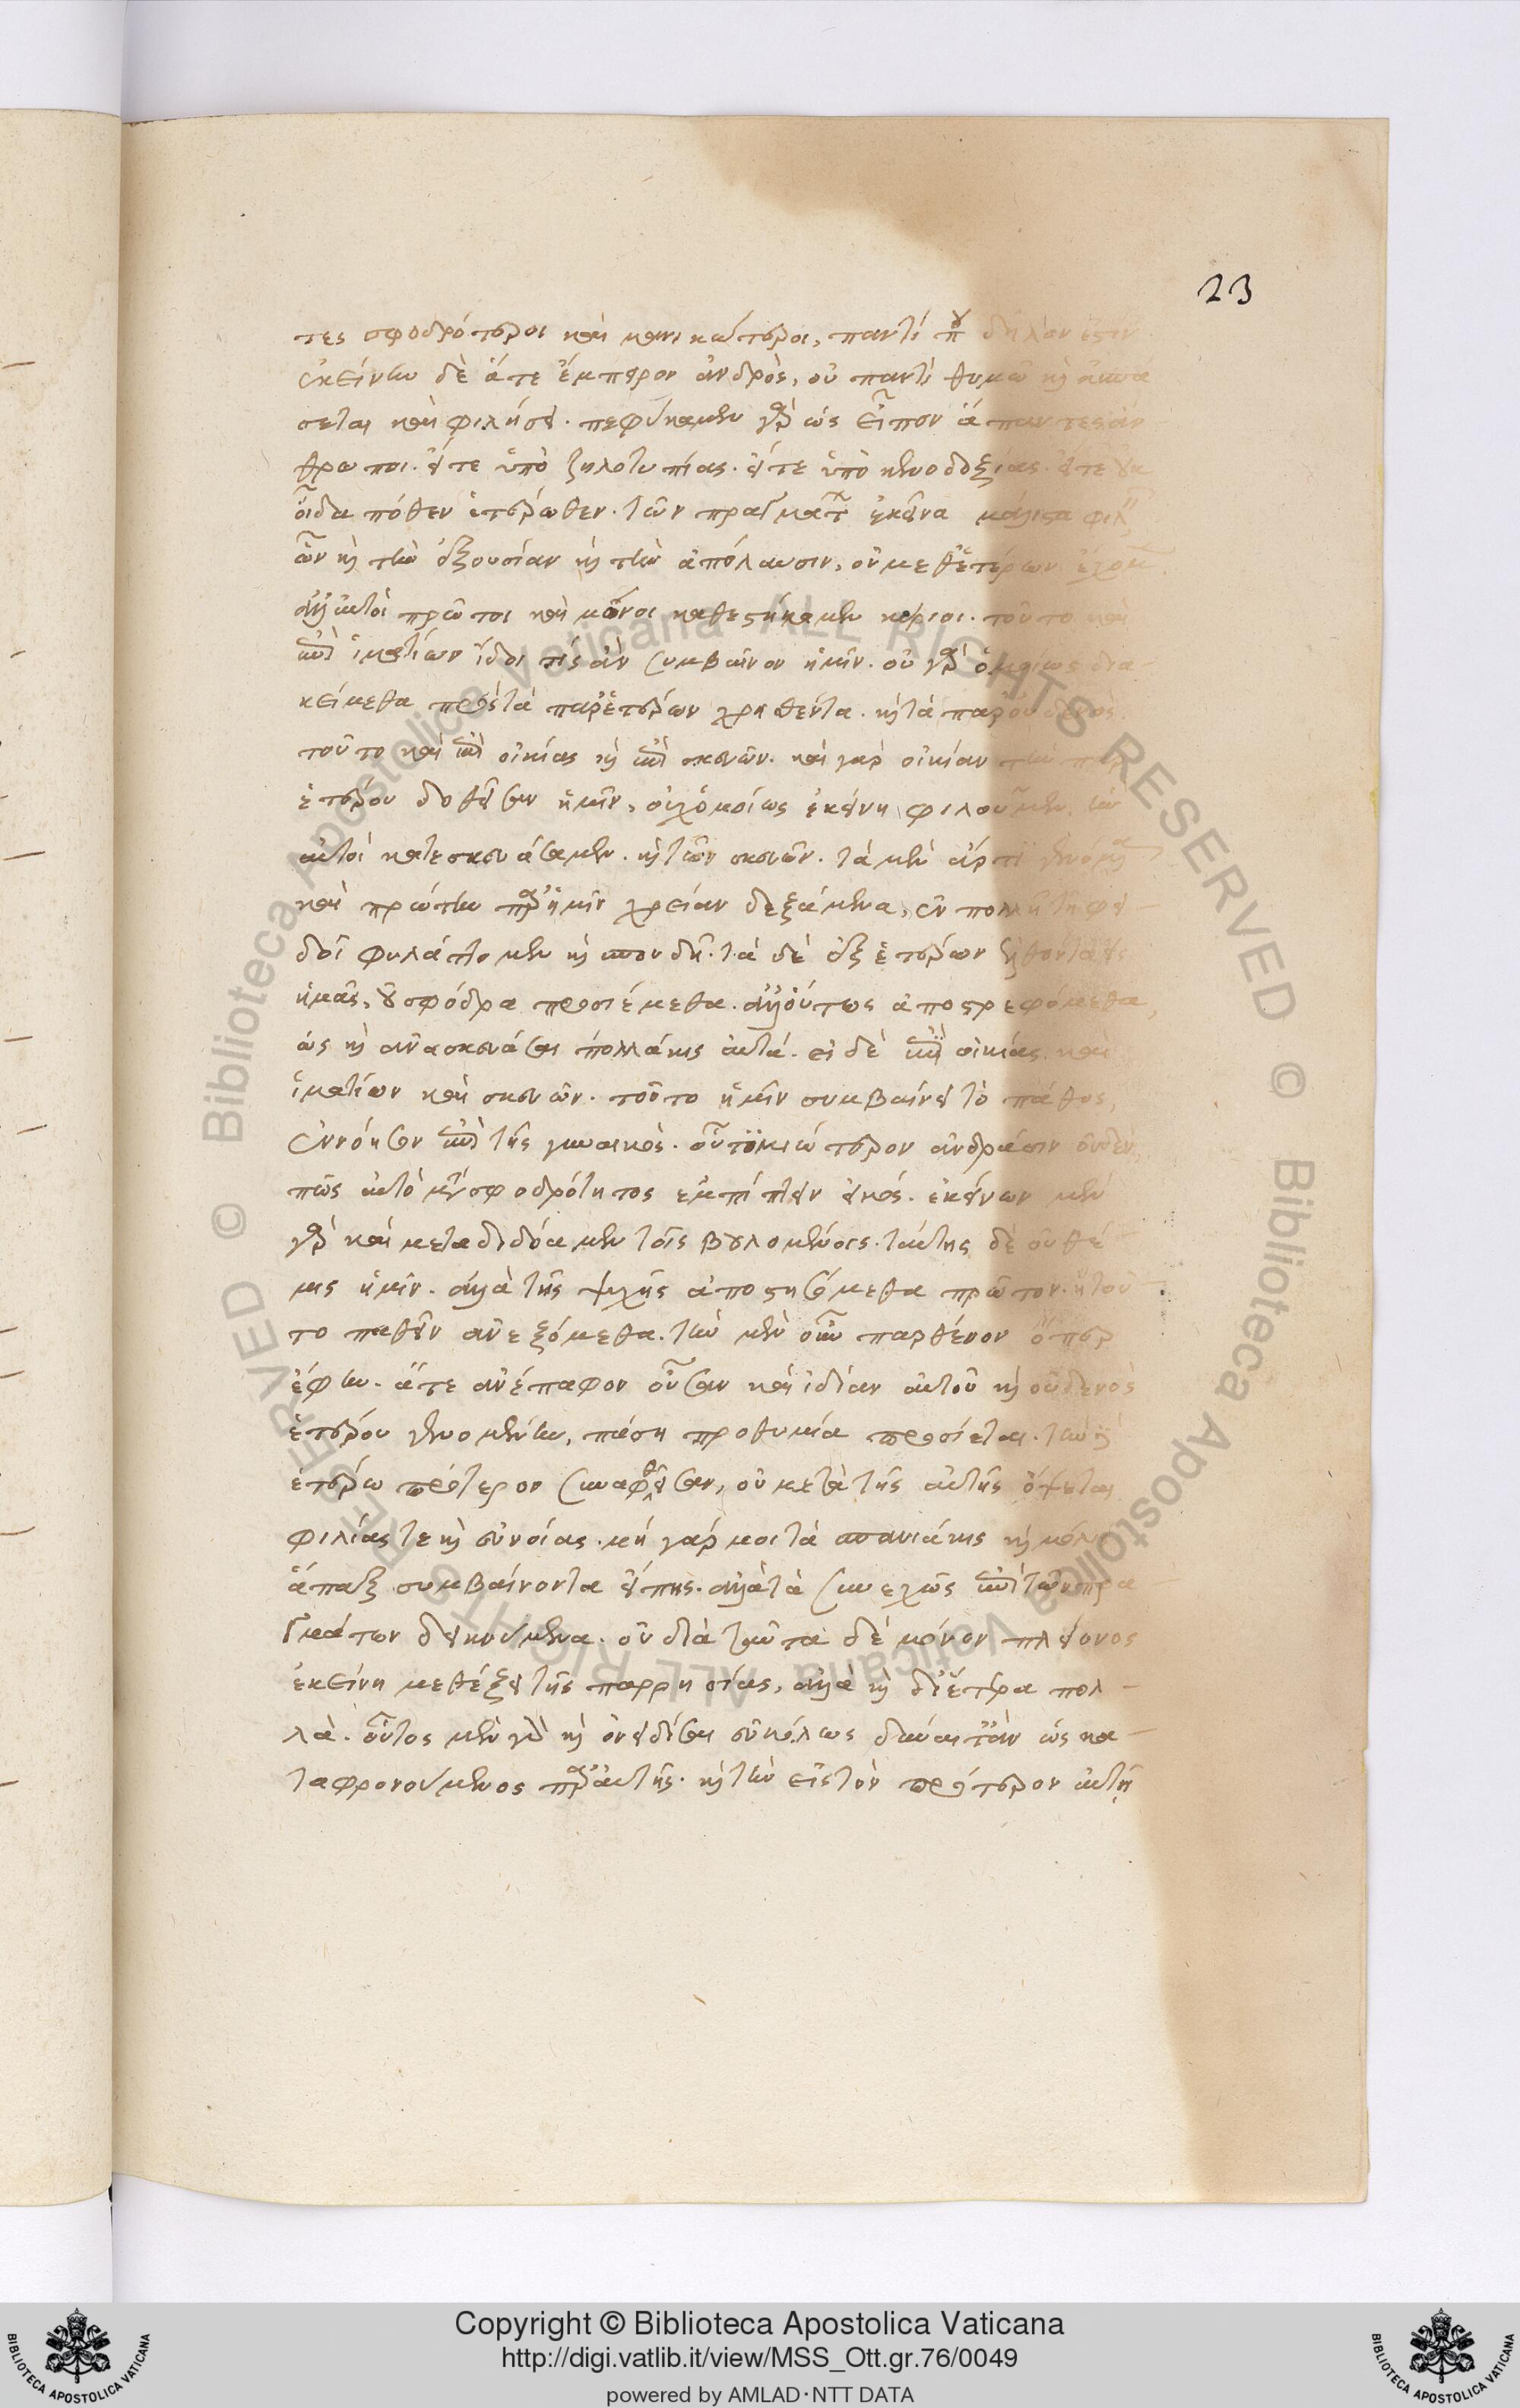 23
τες σφοδρότεροι καὶ μανικώτεροι, παντί που δῆλόν ἐστιν
ἐκείνην δὲ ἅτε ἔμπειρον ἀνδρὸς, οὐ παντὶ θυμῷ καὶ ἀσπά
σεται καὶ φιλήσει. πεφύκαμεν γὰρ ὡς εἶπον ἅπαντες ἄν
θρωποι. εἴτε ὑπὸ ζηλοτυπίας. εἴτε ὑπὸ κενοδοξίας. εἴτε οὐκ
οἶδα πόθεν ἑτέρωθεν. τῶν πραγμάτων ἐκεῖνα μάλιστα φιλεῖν
ὧν καὶ τὴν ἐξουσίαν καὶ τὴν ἀπόλαυσιν, οὐ μεθ' ἑτέρων ἔχομεν
ἀλλ' αὐτοὶ πρῶτοι καὶ μόνοι καθεστήκαμεν κύριοι. τοῦτο καὶ
ἐπὶ ἱματίων ἴδοι τίς ἂν συμβαῖνον ἡμῖν. οὐ γὰρ ὁμοίως δια-
κείμεθα πρὸς τὰ παρ' ἑτέρων χρηθέντα. καὶ τὰ παρ' οὐδενὸς.
τοῦτο καὶ ἐπὶ οἰκίας καὶ ἐπὶ σκευῶν. καὶ γὰρ οἰκίαν τὴν παρ'
ἑτέρου δοθεῖσαν ἡμῖν, οὐχ ὁμοίως ἐκείνῃ φιλοῦμεν, ἣν
αὐτοὶ κατεσκευάσαμεν. καὶ τῶν σκευῶν. τὰ μὲν ἄρτι γενόμενα
καὶ πρώτην παρ' ἡμῖν χρείαν δεξάμενα, ἐν πολλῇ τῇ φει-
δοῖ φυλάττομεν καὶ σπουδῇ. τὰ δὲ ἐξ ἑτέρων ἐλθόντα εἰς
ἡμᾶς, οὐ σφόδρα προσιέμεθα. ἀλλ' οὕτως ἀποστρεφόμεθα,
ὡς καὶ ἀνασκευάσαι πολλάκις αὐτά. εἰ δὲ ἐπὶ οἰκίας καὶ
ἱματίων καὶ σκευῶν. τοῦτο ἡμῖν συμβαίνει τὸ πάθος,
ἐννόησον ἐπὶ τῆς γυναικὸς. οὗ τιμιώτερον ἀνδράσιν οὐδὲν,
πῶς αὐτὸ μετὰ σφοδρότητος ἐμπίπτειν εἰκός. ἐκείνων μὲν
γὰρ καὶ μεταδιδόαμεν τοῖς βουλομένοις. ταύτης δὲ οὐ θέ
μις ἡμῖν. ἀλλὰ τῆς ψυχῆς ἀποστησόμεθα πρῶτον. ἢ τοῦ
το παθεῖν ἀνεξόμεθα. τὴν μὲν οὖν παρθένον ὅπερ
ἔφην. ἅτε ἀνέπαφον οὖσαν καὶ ἰδίαν αὐτοῦ καὶ οὐδενὸς
ἑτέρου γενομένην, πάσῃ προθυμίᾳ προσίεται. τὴν δὲ
ἑτέρῳ πρότερον συναφθεῖσαν, οὐ μετὰ τῆς αὐτῆς ὄψεται
φιλίας τε καὶ εὐνοίας. μὴ γάρ μοι τὰ σπανιάκις καὶ μόλις
ἅπαξ συμβαίνοντα εἴπῃς. ἀλλὰ τὰ συνεχῶς ἐπὶ τῶν πρα
γμάτων δεικνύμενα. οὐ διὰ ταῦτα δὲ μόνον πλείονος
ἐκείνη μεθέξει τῆς παρρησίας, ἀλλὰ καὶ δι' ἕτερα πολ-
λὰ. οὗτος μὲν γὰρ καὶ ὀνειδίσαι εὐκόλως δύναιτ' ἂν ὡς κα-
ταφρονούμενος παρ' αὐτῆς. καὶ τὴν εἰς τὸν πρότερον αὐτῇ
Copyright © Biblioteca Apostolica Vaticana
http://digi.vatlib.it/view/MSS_Ott.gr.76/0049
powered by AMLAD·NTT DATA